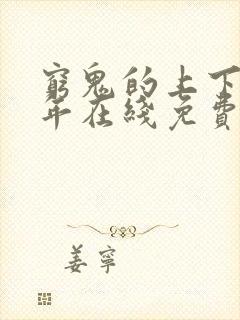 窮鬼的上下
年在綫免費
姜寧